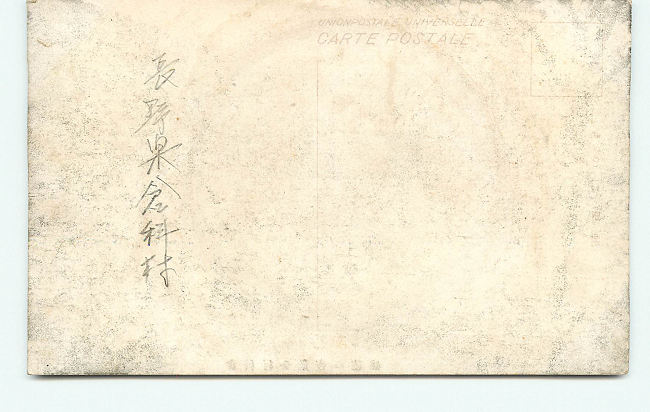 UNION POSTALE UNIVERSELLE
CARTE POSTALE
長野県倉科村